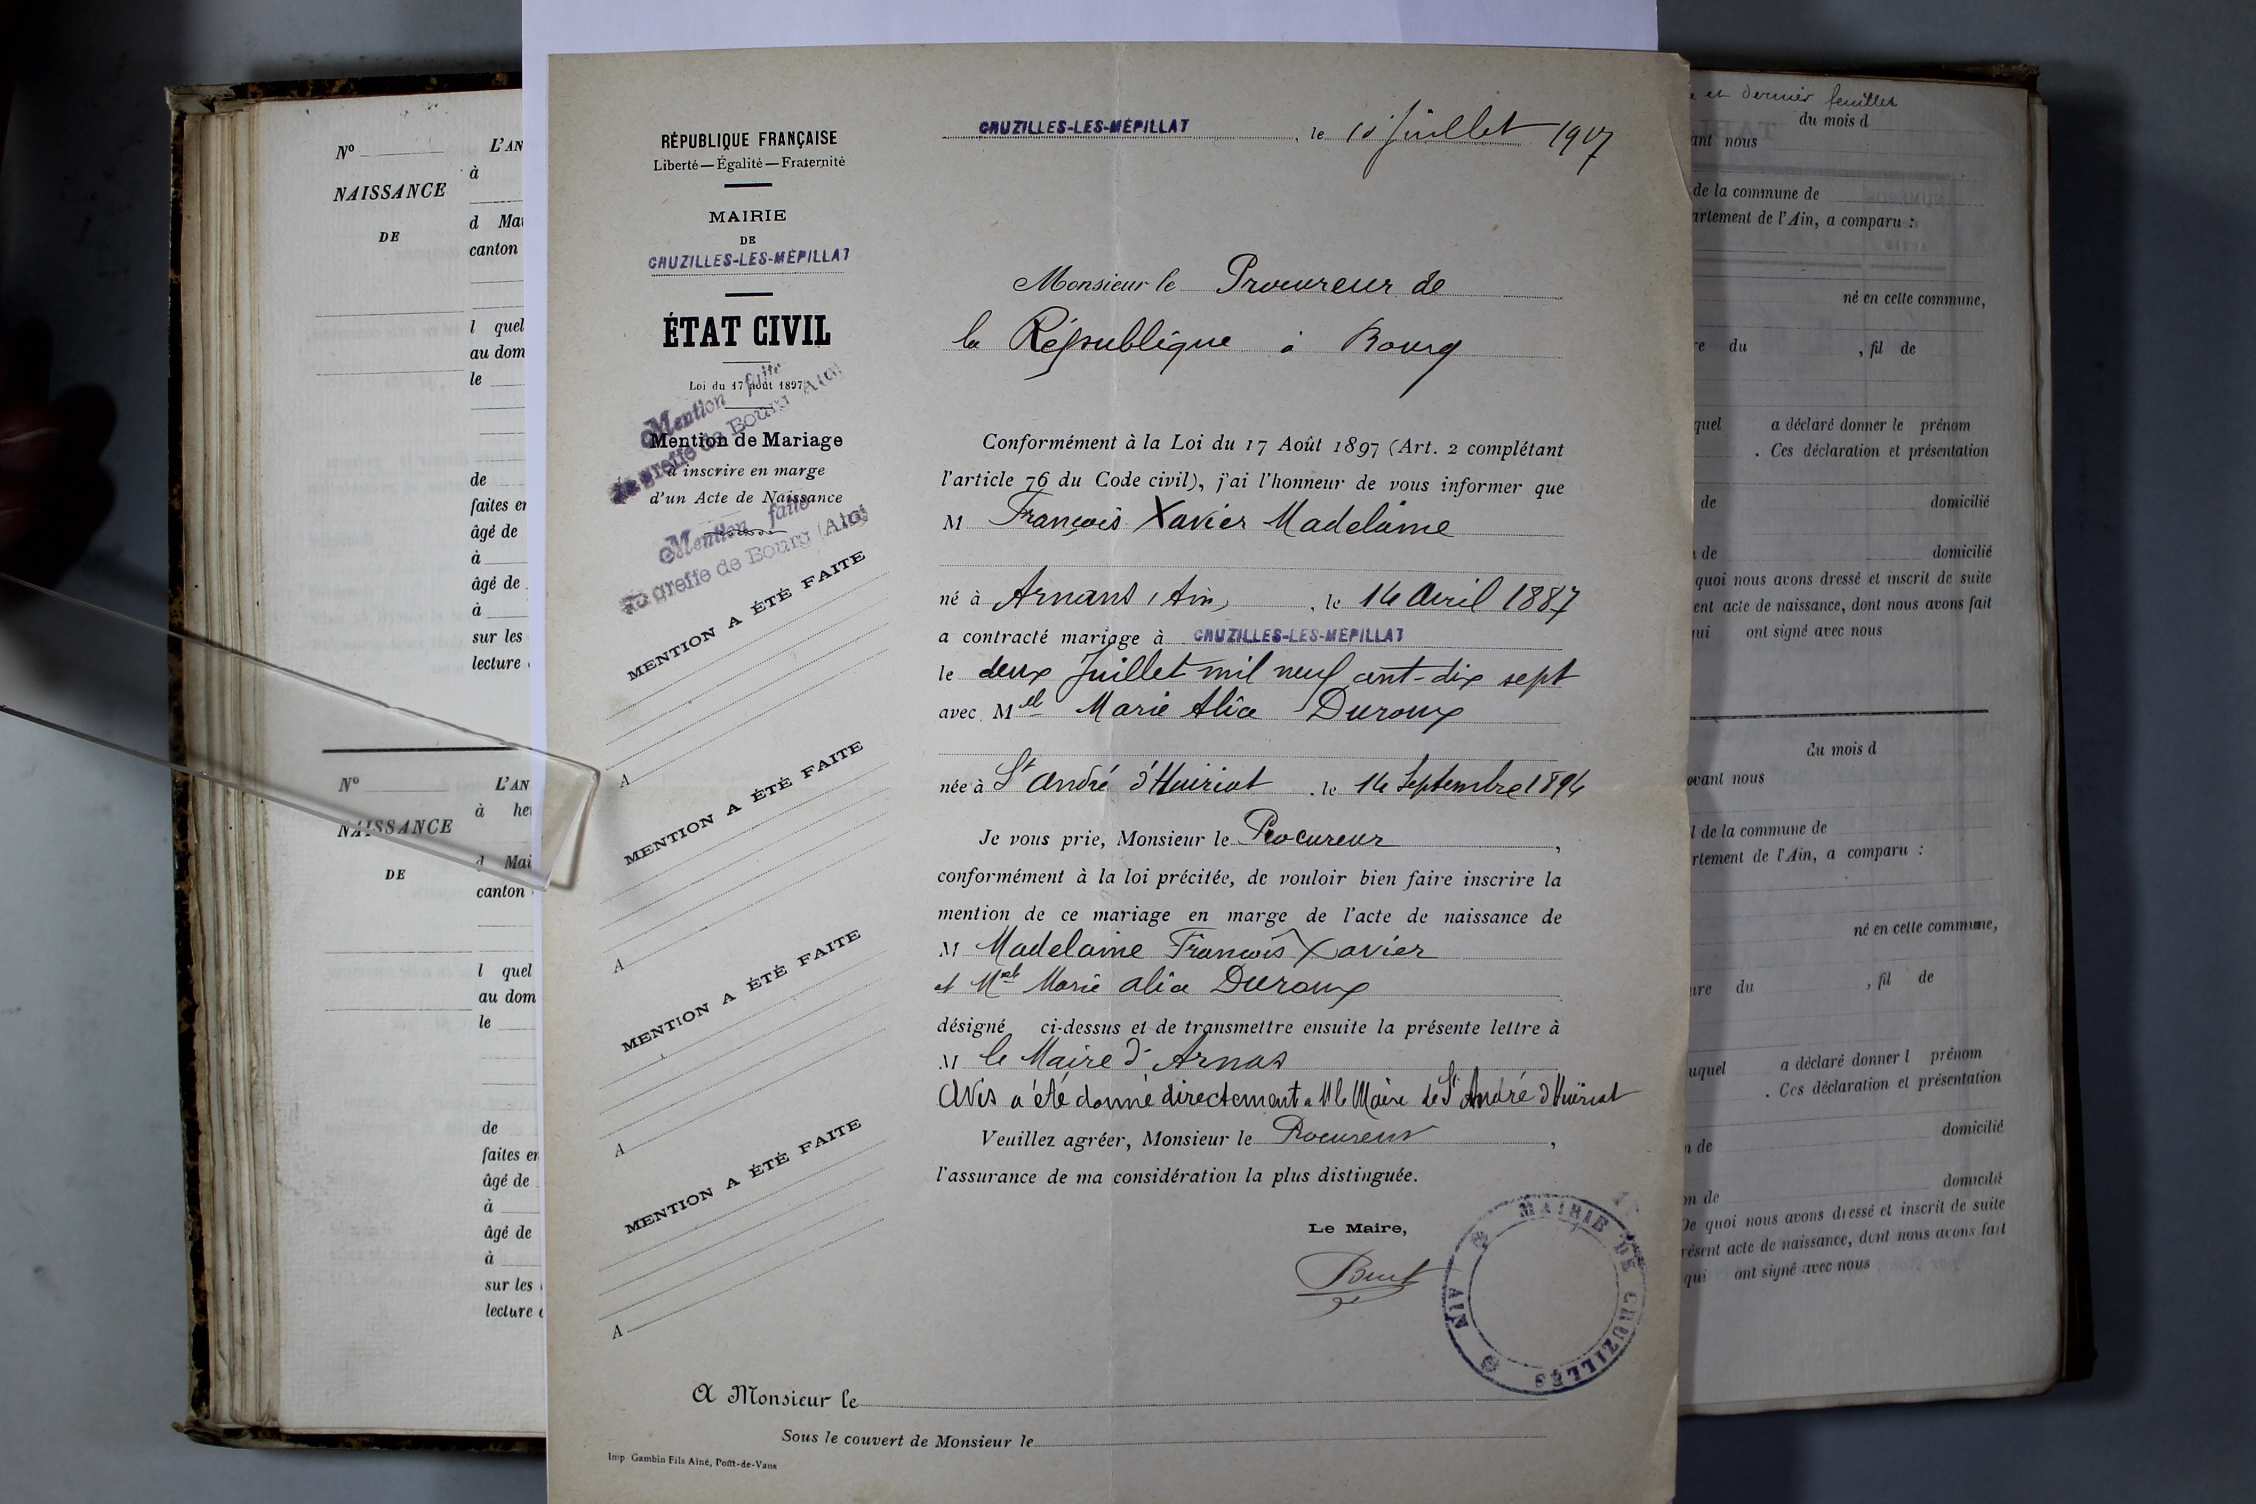 RÉPUBLIQUE FRANÇAISE
Liberté — Égalité — Fraternité
MAIRIE
DE
CRUZILLES-LES-MÉPILLAT
ÉTAT CIVIL
Loi du 17 août 1897
Mention faite
au greffe de Bourg (Ain)
Mention de Mariage
à inscrire en marge
d'un Acte de Naissance
Mention faite
au greffe de Bourg (Ain)
MENTION A ÉTÉ FAITE
A
MENTION A ÉTÉ FAITE
A
MENTION A ÉTÉ FAITE
A
MENTION A ÉTÉ FAITE
A
CRUZILLES-LES-MÉPILLAT, le 10 Juillet 1917
Monsieur le Procureur de
la République à Bourg
Conformément à la Loi du 17 Août 1897 (Art. 2 complétant
l'article 76 du Code civil), j'ai l'honneur de vous informer que
M François Xavier Madelaine
né à Arnans (Ain), le 14 Avril 1887
a contracté mariage à CRUZILLES-LES-MÉPILLAT
le deux Juillet mil neuf cent-dix sept
avec Mlle Marie Alice Duroux
née à St André d'Huiriat, le 14 Septembre 1894
Je vous prie, Monsieur le Procureur,
conformément à la loi précitée, de vouloir bien faire inscrire la
mention de ce mariage en marge de l'acte de naissance de
M Madelaine François Xavier
et Mlle Marie Alice Duroux
désigné ci-dessus et de transmettre ensuite la présente lettre à
M le Maire d'Arnas
Avis a été donné directement a M le Maire de St André d'Huiriat
Veuillez agréer, Monsieur le Procureur,
l'assurance de ma considération la plus distinguée.
Le Maire,
MAIRIE DE CRUZILLES
AIN
A Monsieur le
Sous le couvert de Monsieur le
Imp Gambin Fils Aîné, Pont-de-Vaux
No
L'AN
NAISSANCE
à
DE
d Mai
canton
l quel
au dom
le
de
faites en
âgé de
à
âgé de
à
sur les
lecture
No
L'AN
à he
NAISSANCE
d Mai
DE
canton
l quel
au dom
le
de
faites en
âgé de
à
âgé de
à
sur les
lecture
et dernier feuillet
du mois d
ant nous
de la commune de
artement de l'Ain, a comparu :
né en cette commune,
re du , fil de
quel a déclaré donner le prénom
. Ces déclaration et présentation
de domicilié
de domicilié
quoi nous avons dressé et inscrit de suite
ent acte de naissance, dont nous avons fait
qui ont signé avec nous
du mois d
evant nous
l de la commune de
rtement de l'Ain, a comparu :
né en cette commune,
ure du , fil de
uquel a déclaré donner l prénom
. Ces déclaration et présentation
n de domicilié
on de domicilié
De quoi nous avons dressé et inscrit de suite
résent acte de naissance, dont nous avons fait
qui ont signé avec nous